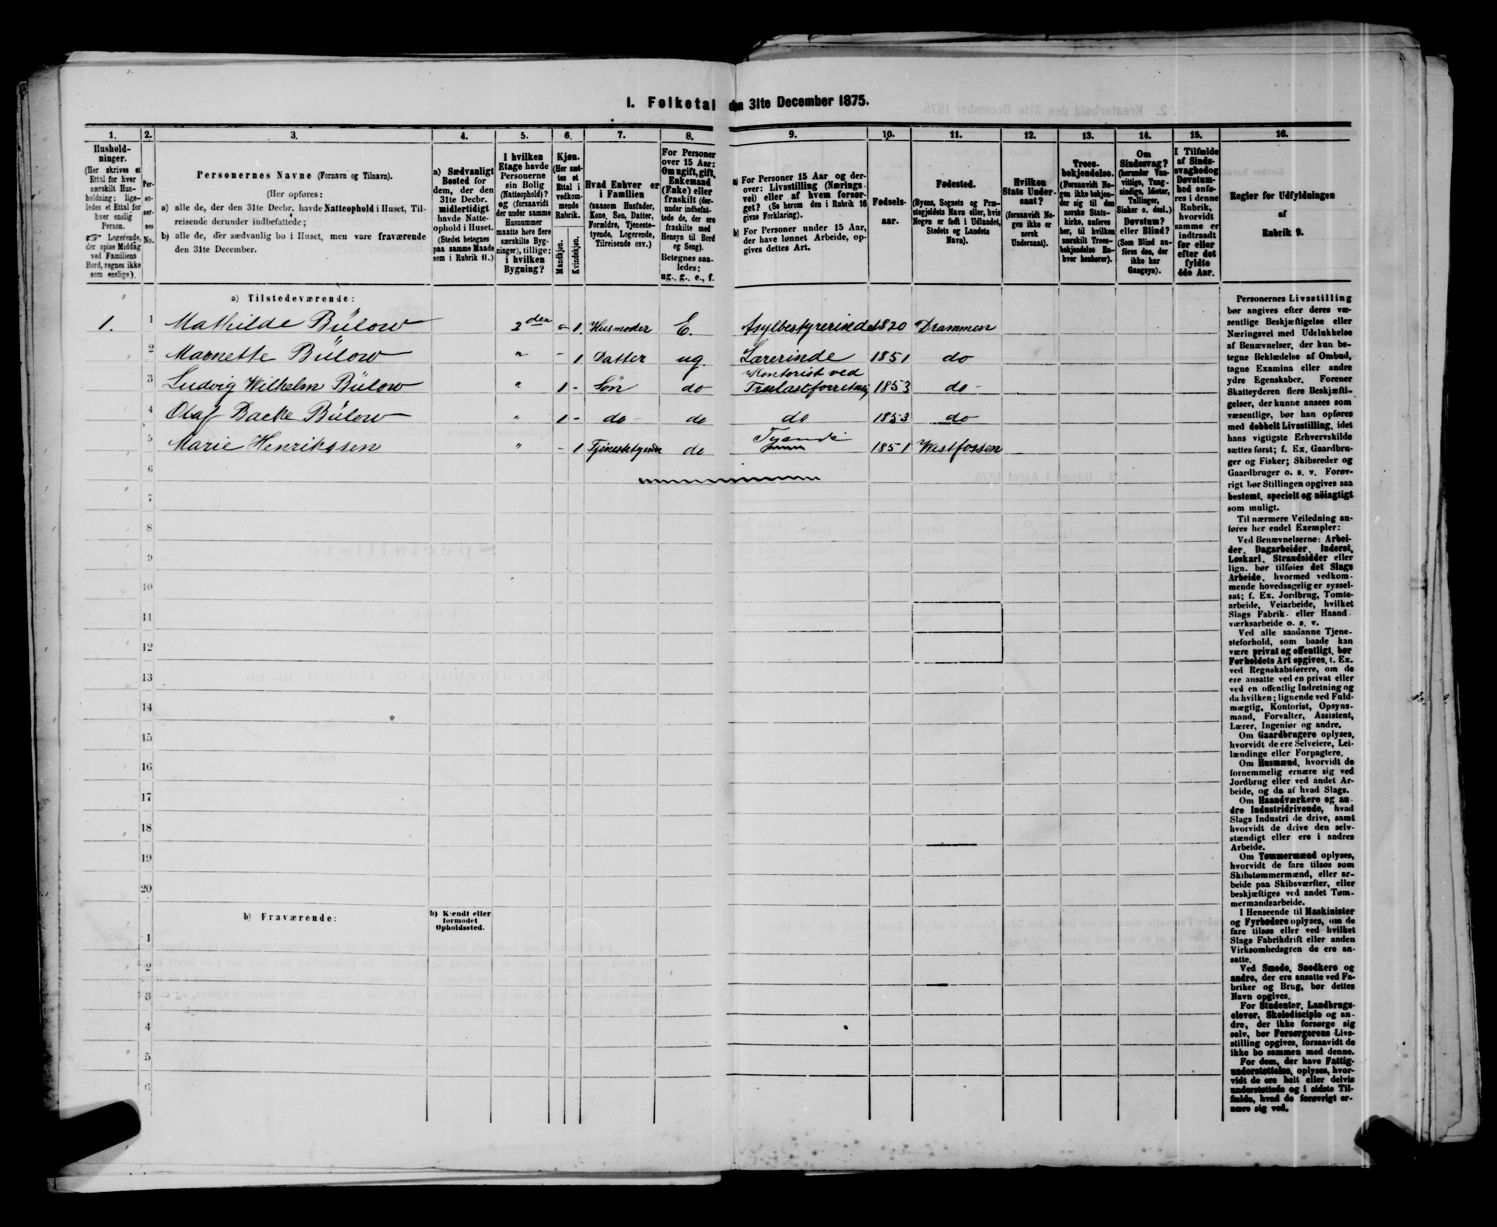 1. Folketal den 31te December 1875.
1. 2. 3. 4. 5. 6. 7. 8. 9. 10. 11. 12. 13. 14. 15. 16.
Hushold-
ninger.
(Her skrives et
Ettal for hver
særskilt Hus-
holdning; lige-
ledes et Ettal for
hver enslig
Person.
Logerende,
der spise Middag
ved Familiens
Bord, regnes ikke
som enslige).
Per-
so-
ner-
nes
No.
Personernes Navne (Fornavn og Tilnavn).
(Her opføres:
a) alle de, der den 31te Decbr. havde Natteophold i Huset, Til-
reisende derunder indbefattede;
b) alle de, der sædvanlig bo i Huset, men vare fraværende
den 31te December.
a) Sædvanligt
Bosted for
dem, der den
31te Decbr.
midlertidigt
havde Natte-
ophold i Huset.
(Stedet betegnes
paa samme Maade
som i Rubrik 11.)
I hvilken
Etage havde
Personerne
sin Bolig
(Natteophold)?
og (forsaavidt
der under samme
Husnummer
maatte høre flere
særskilte Byg-
ninger), tillige:
i hvilken
Bygning?
Kjøn.
(Her sæt-
tes et
Ettal i
vedkom-
mende
Rubrik.
Mandkjøn.
Kvindekjøn.
Hvad Enhver er
i Familien
(saasom Husfader,
Kone, Søn, Datter,
Forældre, Tjeneste-
tyende, Logerende,
Tilreisende osv.)
For Personer
over 15 Aar:
Om ugift, gift,
Enkemand
(Enke) eller
fraskilt (der-
under indbefat-
tede de, der ere
fraskilte med
Hensyn til Bord
og Seng).
Betegnes saa-
ledes:
ug., g., e., f.
a) For Personer 15 Aar og der-
over: Livsstilling (Nærings-
vei) eller af hvem forsør-
get? (Se herom den i Rubrik 16
givne Forklaring).
b) For Personer under 15 Aar,
der have lønnet Arbeide, op-
gives dettes Art.
Fødsels-
aar.
Fødested.
(Byens, Sognets og Præ-
stegjeldets Navn eller, hvis
Nogen er født i Udlandet,
Stedets og Landets
Navn).
Hvilken
Stats Under-
saat?
(forsaavidt No-
gen ikke er
norsk
Undersaat).
Troes-
bekjendelse.
(Forsaavidt No-
gen ikke bekjen-
der sig til den
norske Stats-
kirke, anføres
her, til hvilken
særskilt Troes-
bekjendelse En-
hver henhører).
Om
Sindssvag?
(herunder Van-
vittige, Tung-
sindige, Idioter,
Tullinger,
Sinker o. desl.)
Døvstum?
eller Blind?
(Som Blind an-
føres den, der
ikke har
Gangsyn).
I Tilfælde
af Sinds-
svaghed og
Døvstum-
hed anfø-
res i denne
Rubrik,
hvorvidt
samme er
indtraadt
før eller
efter det
fyldte
4de Aar.
Regler for Udfyldningen
af
Rubrik 9.
a) Tilstedeværende:
1. 1 Mathilde Bülow 2den - 1. Husmoder E. Asylbestyrerinde 1820 Drammen
2 Magnette Bülow " - 1 Datter ug. Lærerinde 1851 do
3 Ludvig Wilhelm Bülow " 1 - Søn do Kontorist ved
Trælastforretning 1853 do -
4 Olaf Backe Bülow " 1 - do do do 1853 do
5 Marie Henrikssen " - 1 Tjenestetyende do Tyende 1851 Westfossen
6
7
8
9
10
11
12
13
14
15
16
17
18
19
20
b) Fraværende:
b) Kjendt eller
formodet
Opholdssted.
1
2
3
4
5
6
Personernes Livsstilling
bør angives efter deres væ-
sentlige Beskjæftigelse eller
Næringsvei med Udelukkelse
af Benævnelser, der kun be-
tegne Beklædelse af Ombud,
tagne Examina eller andre
ydre Egenskaber. Forener
Skatteyderen flere Beskjæfti-
gelser, der kunne ansees som
væsentlige, bør han opføres
med dobbelt Livsstilling, idet
hans vigtigste Erhvervskilde
sættes først; f. Ex. Gaardbru-
ger og Fisker; Skibsreder og
Gaardbruger o. s. v. Forøv-
rigt bør Stillingen opgives saa
bestemt, specielt og nøiagtigt
som muligt.
Til nærmere Veiledning an-
føres her endel Exempler:
Ved Benævnelserne: Arbei-
der, Dagarbeider, Inderst,
Løskarl, Strandsidder eller
lign. bør tilføies det Slags
Arbeide, hvormed vedkom-
mende hovedsagelig er syssel-
sat; f. Ex. Jordbrug, Tomte-
arbeide, Veiarbeide, hvilket
Slags Fabrik- eller Haand-
værksarbeide o. s. v.
Ved alle saadanne Tjene-
steforhold, som baade kan
være privat og offentligt, bør
Forholdets Art opgives, f. Ex.
ved Regnskabsførere, om de
ere ansatte ved en privat eller
ved en offentlig Indretning og
da hvilken; lignende ved Fuld-
mægtig, Kontorist, Opsyns-
mand, Forvalter, Assistent,
Lærer, Ingeniør og andre.
Om Gaardbrugere oplyses,
hvorvidt de ere Selveiere, Lei-
lændinge eller Forpagtere.
Om Husmænd, hvorvidt de
fornemmelig ernære sig ved
Jordbrug eller ved andet Ar-
beide, og da af hvad Slags.
Om Haandværkere og an-
dre Industridrivende, hvad
Slags Industri de drive, samt
hvorvidt de drive den selv-
stændigt eller ere i andres
Arbeide.
Om Tømmermænd oplyses,
hvorvidt de fare tilsøs som
Skibstømmermænd, eller ar-
beide paa Skibsværfter, eller
beskjæftiges ved andet Tøm-
mermandsarbeide.
I Henseende til Maskinister
og Fyrbødere oplyses, om de
fare tilsøs eller ved hvilket
Slags Fabrikdrift eller anden
Virksomhedsgren de ere an-
satte.
Ved Smede, Snedkere og
andre, der ere ansatte ved Fa-
briker og Brug, bør dettes
Navn opgives.
For Studenter, Landbrugs-
elever, Skoledisciple og an-
dre, der ikke forsørge sig
selv, bør Forsørgerens Livs-
stilling opgives, forsaavidt de
ikke bo sammen med denne.
For dem, der have Fattig-
understøttelse, oplyses, hvor-
vidt de ere helt eller delvis
understøttede og i sidste Til-
fælde, hvad de forøvrigt er-
nære sig ved.